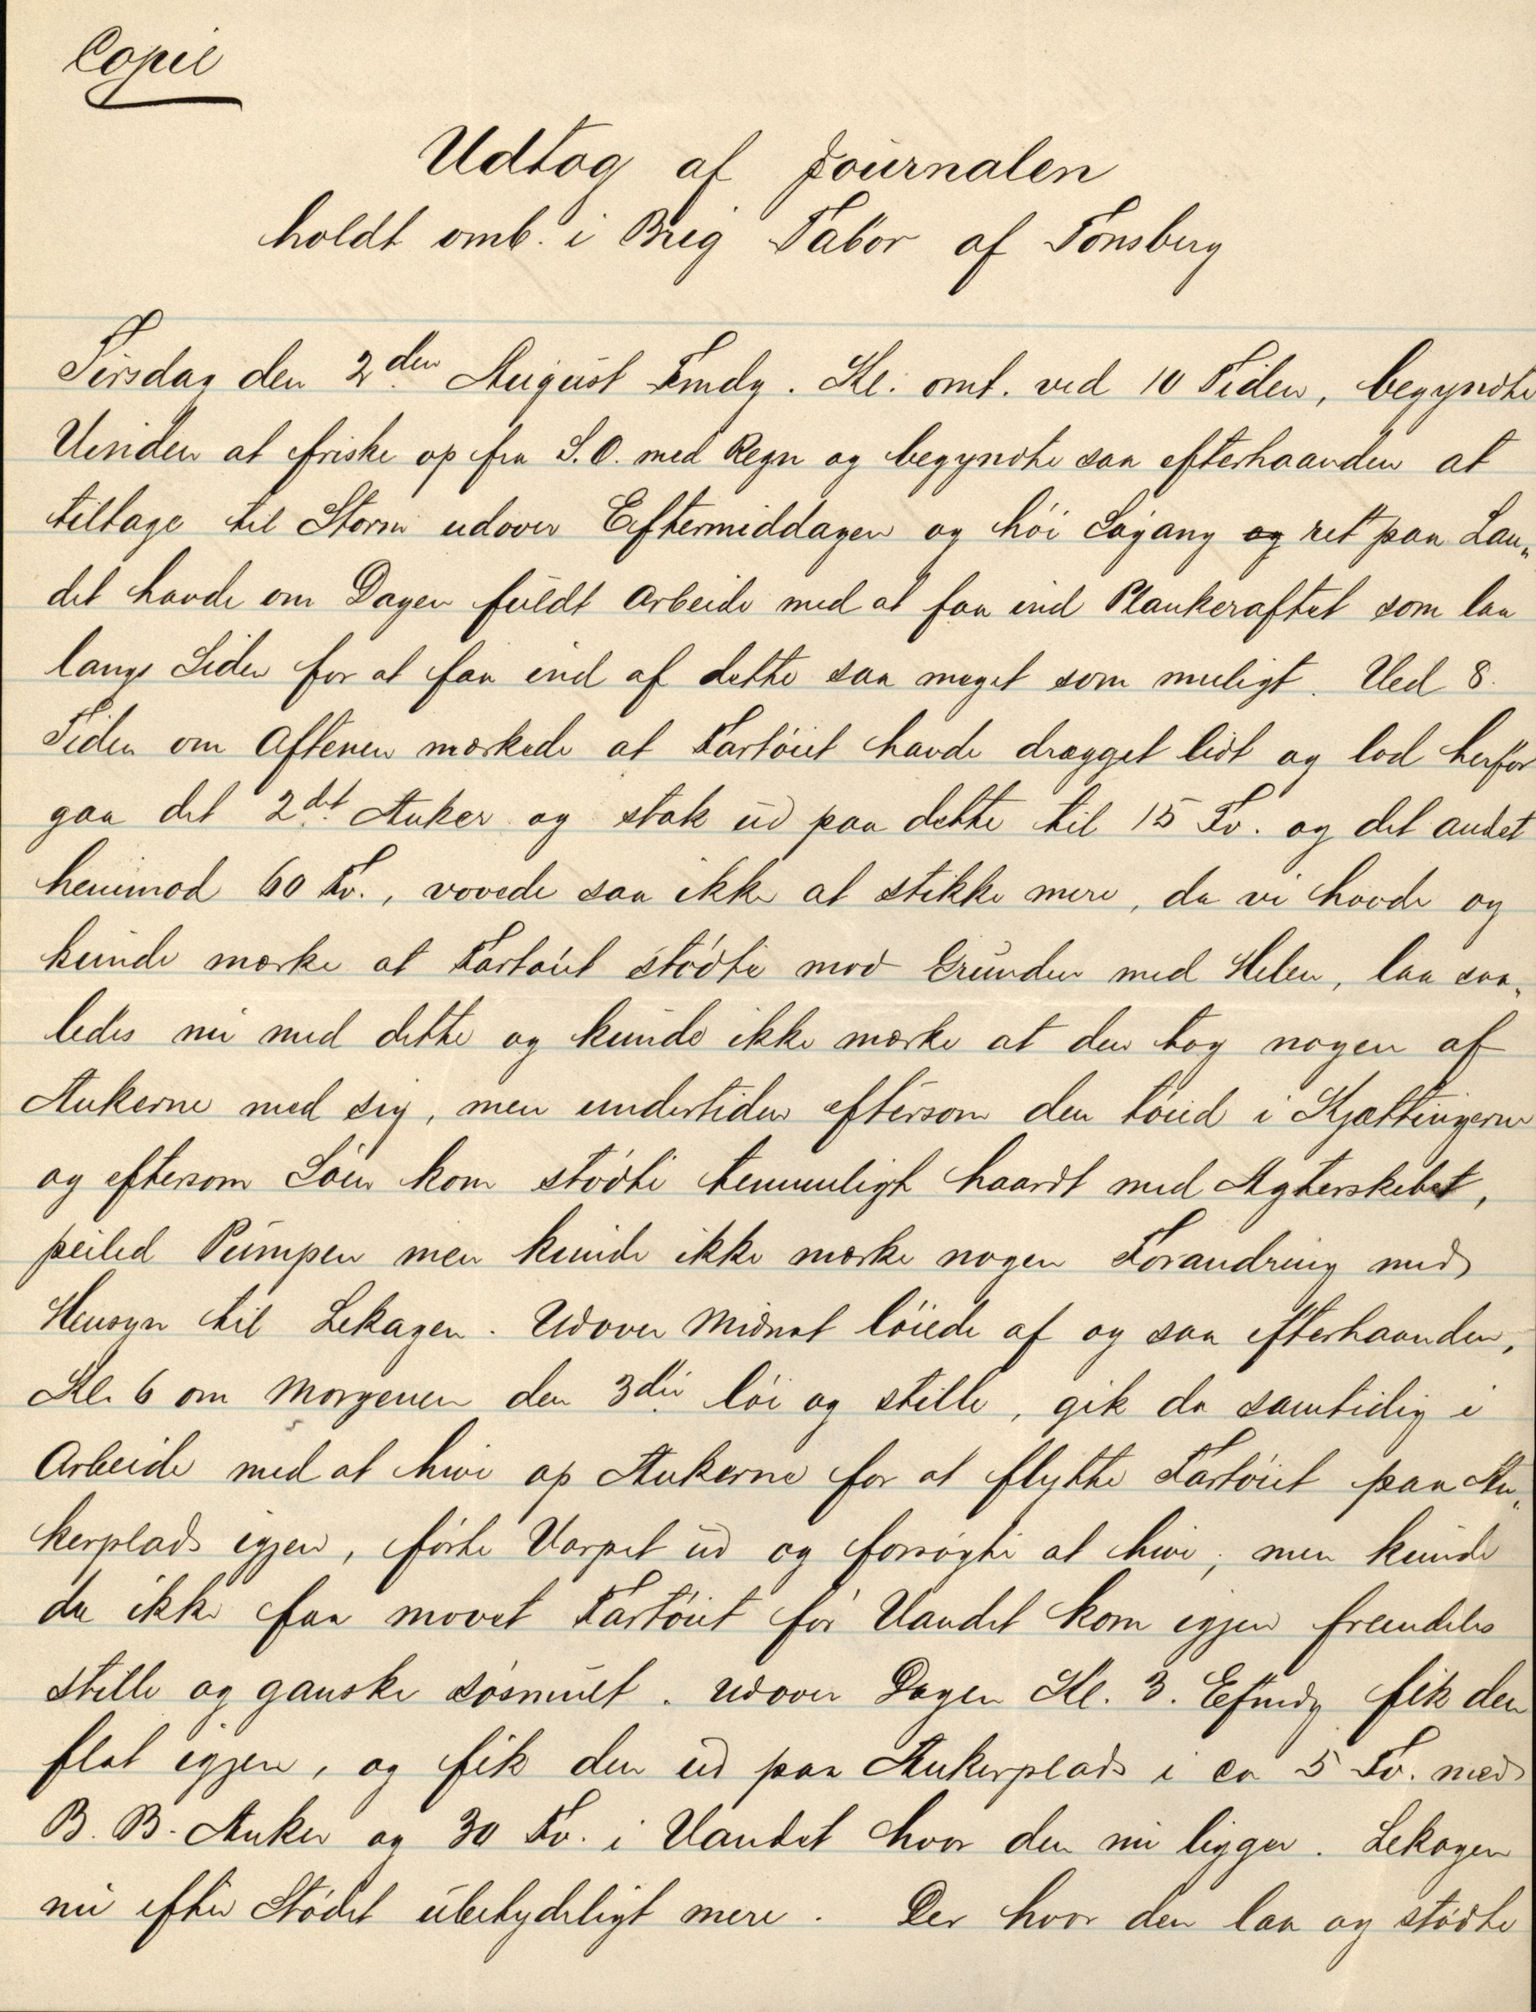 Copie
Udtog af Journalen
holdt omb. i Brig Tabor af Tønsberg
Tirsdag den 2den August Fmdg. Kl. omt. ved 10 Tiden, begyndte
Vinden at friske op fra S.O. med Regn og begyndte saa efterhaanden at
tiltage til Storm udover Eftermiddagen og høi Søgang og ret paa Lan„
det havde om Dagen fuldt Arbeide med at faa ind Plankeraftet som laa
langs Siden for at faa ind af dette saa meget som muligt. Ved 8.
Tiden om Aftenen mærkede at Fartøiet havde drægget lidt og lod herfor
gaa det 2det Anker og stak ud paa dette til 15 Fv. og det andet
henimod 60 Fv., vovede saa ikke at stikke mere, da vi havde og
kunde mærke at Fartøiet stødte mod Grunden med Helen, laa saa„
ledes nu med dette og kunde ikke mærke at den tog nogen af
Ankerne med sig, men undertiden eftersom den tøied i Kjættingerne
og eftersom Søen kom stødte temmeligt haardt med Agterskibet,
peiled Pumpen men kunde ikke mærke nogen Forandring med
Hensyn til Lekagen. Udover Midnat løiede af og saa efterhaanden,
Kl. 6 om Morgenen den 3die løi og stille, gik da samtidig i
Arbeide med at hive op Ankerne for at flytte Fartøiet paa An„
kerplads igjen, førte Varpet ud og forsøgte at hive, men kunde
da ikke faa movet Fartøiet før Vandet kom igjen fremdeles
stille og ganske søsmult. Udover Dagen Kl. 3. Efmdg fik den
flot igjen, og fik den ud paa Ankerplads i ca 5 Fv. med
B. B. Anker og 30 Fv. i Vandet hvor den nu ligger. Lekagen
nu efter Stødet ubetydeligt mere. Der hvor den laa og stødte